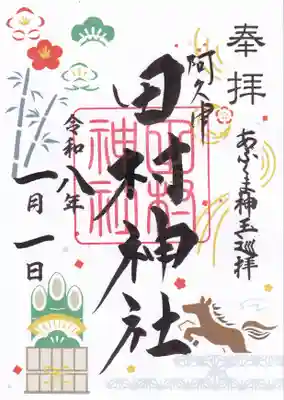 奉拝
あぶくま神玉巡拝
阿久津
田村神社
田村
神社
令和八年
一月一日